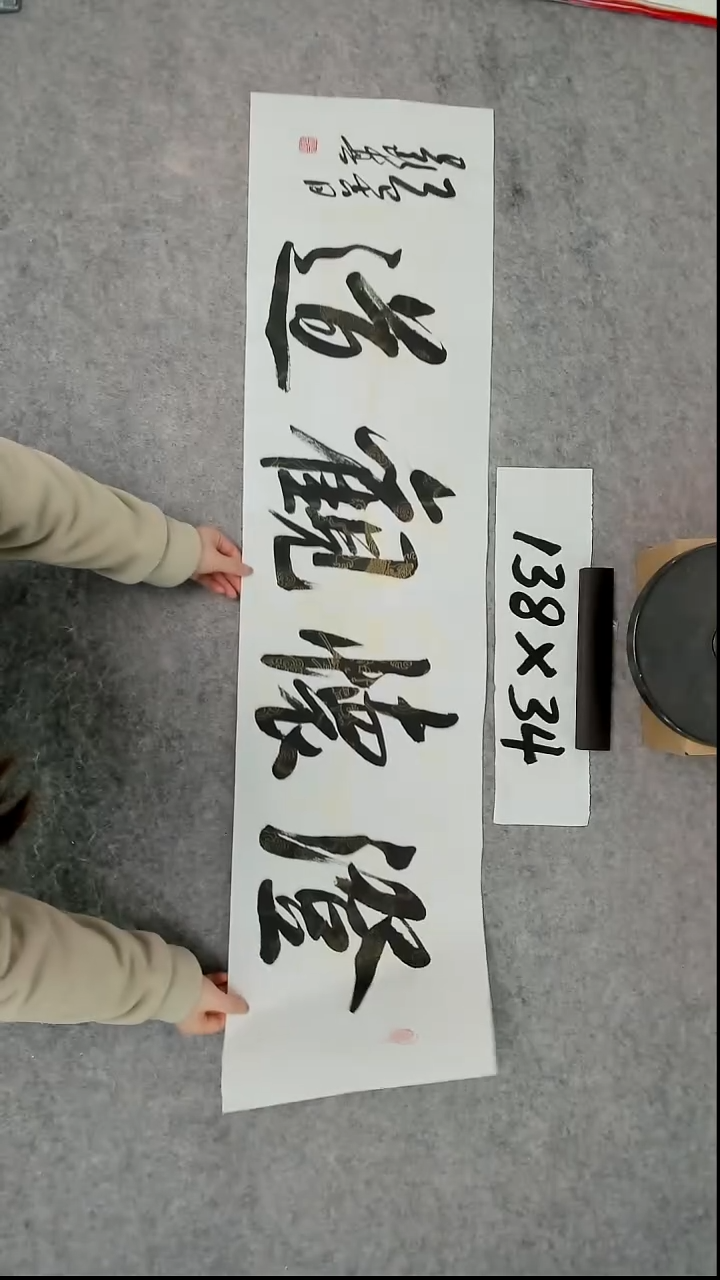 澄懷觀道
138×34